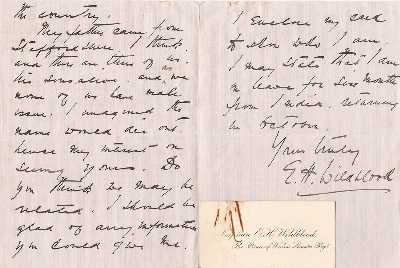 the country.
My father came from
Staffordshire I think,
and there are three of us
his sons alive. and, as
none of us have male
issue. I imagined the
name would die out.
hence my interest on
seeing yours. Do
you think we may be
related. I should be
glad of any information
you could give me.
I Enclose my card
to show who I am.
I may state that I am
on leave for six months
from India. returning
in October.
Yours truly
E. H. Wildblood
Captain E. H. Wildblood.
The Prince of Wales's Leinster Regt.